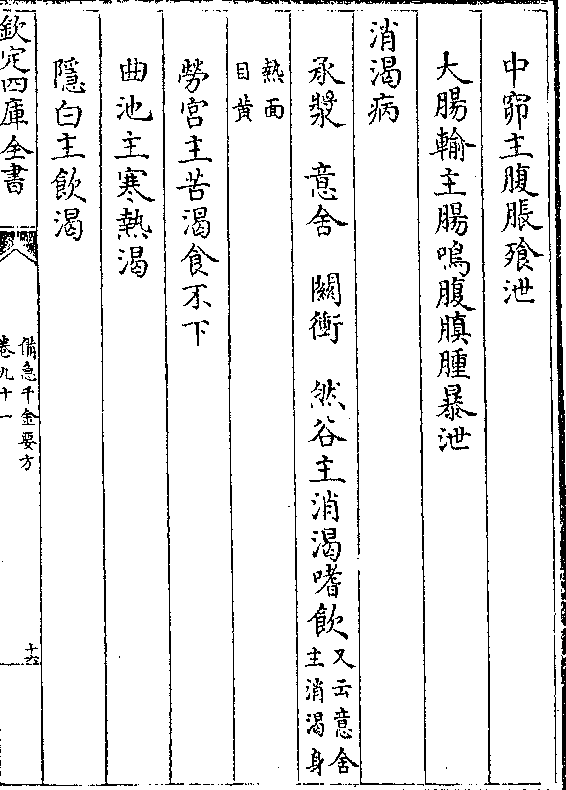 中窌主腹脹飱泄
大腸輸主腸鳴腹䐜腫暴泄
消渴病
承漿　意舍　關衝　然谷主消渴嗜飲又云意舍主消渴身
熱面目黄
勞宮主苦渴食不下
曲池主寒熱渴
隱白主飲渴
欽定四庫全書
備急千金要方
卷九十一
十六